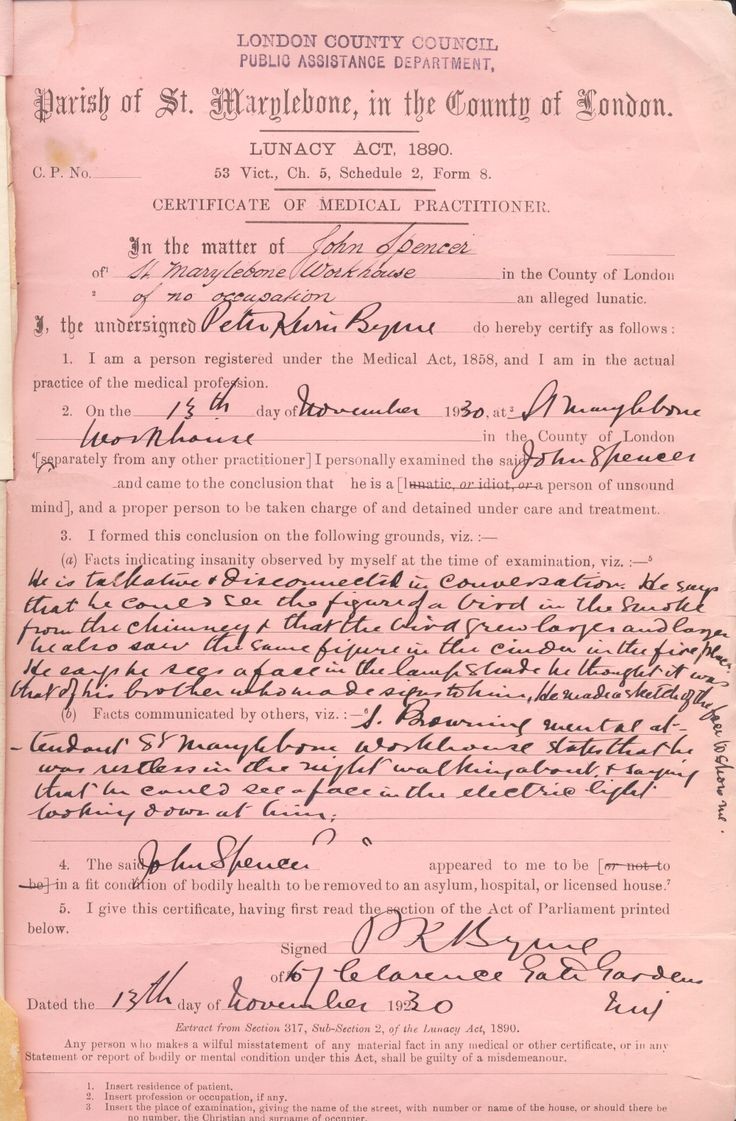 LONDON COUNTY COUNCIL
PUBLIC ASSISTANCE DEPARTMENT,
Parish of St. Marylebone, in the County of London.
LUNACY ACT, 1890.
C. P. No. 53 Vict., Ch. 5, Schedule 2, Form 8.
CERTIFICATE OF MEDICAL PRACTITIONER.
In the matter of John Spencer
of¹ St Marylebone Workhouse in the County of London
² of no occupation an alleged lunatic.
I, the undersigned Peter Kevin Byrne do hereby certify as follows:
1. I am a person registered under the Medical Act, 1858, and I am in the actual
practice of the medical profession.
2. On the 13th day of November 1930, at³ St Marylebone
Workhouse in the County of London
⁴[separately from any other practitioner] I personally examined the said John Spencer
and came to the conclusion that he is a [lunatic, or idiot, or a person of unsound
mind], and a proper person to be taken charge of and detained under care and treatment.
3. I formed this conclusion on the following grounds, viz. :—
(a) Facts indicating insanity observed by myself at the time of examination, viz. :—⁵
He is talkative & disconnected in conversation. He says
that he could see the figure of a bird in the smoke
from the chimney & that the bird grew larger and larger
he also saw the same figure in the cinder in the fire place.
He says he sees a face in the lamp shade he thought it was
that of his brother who made signs to him, He made a sketch of the face to show me.
(b) Facts communicated by others, viz. :—⁶ S. Browning mental at-
-tendant St Marylebone Workhouse states that he
was restless in the night walking about, & saying
that he could see a face in the electric light
looking down at him;
4. The said John Spencer appeared to me to be [or not to
be] in a fit condition of bodily health to be removed to an asylum, hospital, or licensed house.⁷
5. I give this certificate, having first read the section of the Act of Parliament printed
below.
Signed P K Byrne
of Clarence Gate Gardens
Dated the 13th day of November 1930
Extract from Section 317, Sub-Section 2, of the Lunacy Act, 1890.
Any person who makes a wilful misstatement of any material fact in any medical or other certificate, or in any
Statement or report of bodily or mental condition under this Act, shall be guilty of a misdemeanour.
1. Insert residence of patient.
2. Insert profession or occupation, if any.
3 Insert the place of examination, giving the name of the street, with number or name of the house, or should there be
no number, the Christian and surname of occupier.